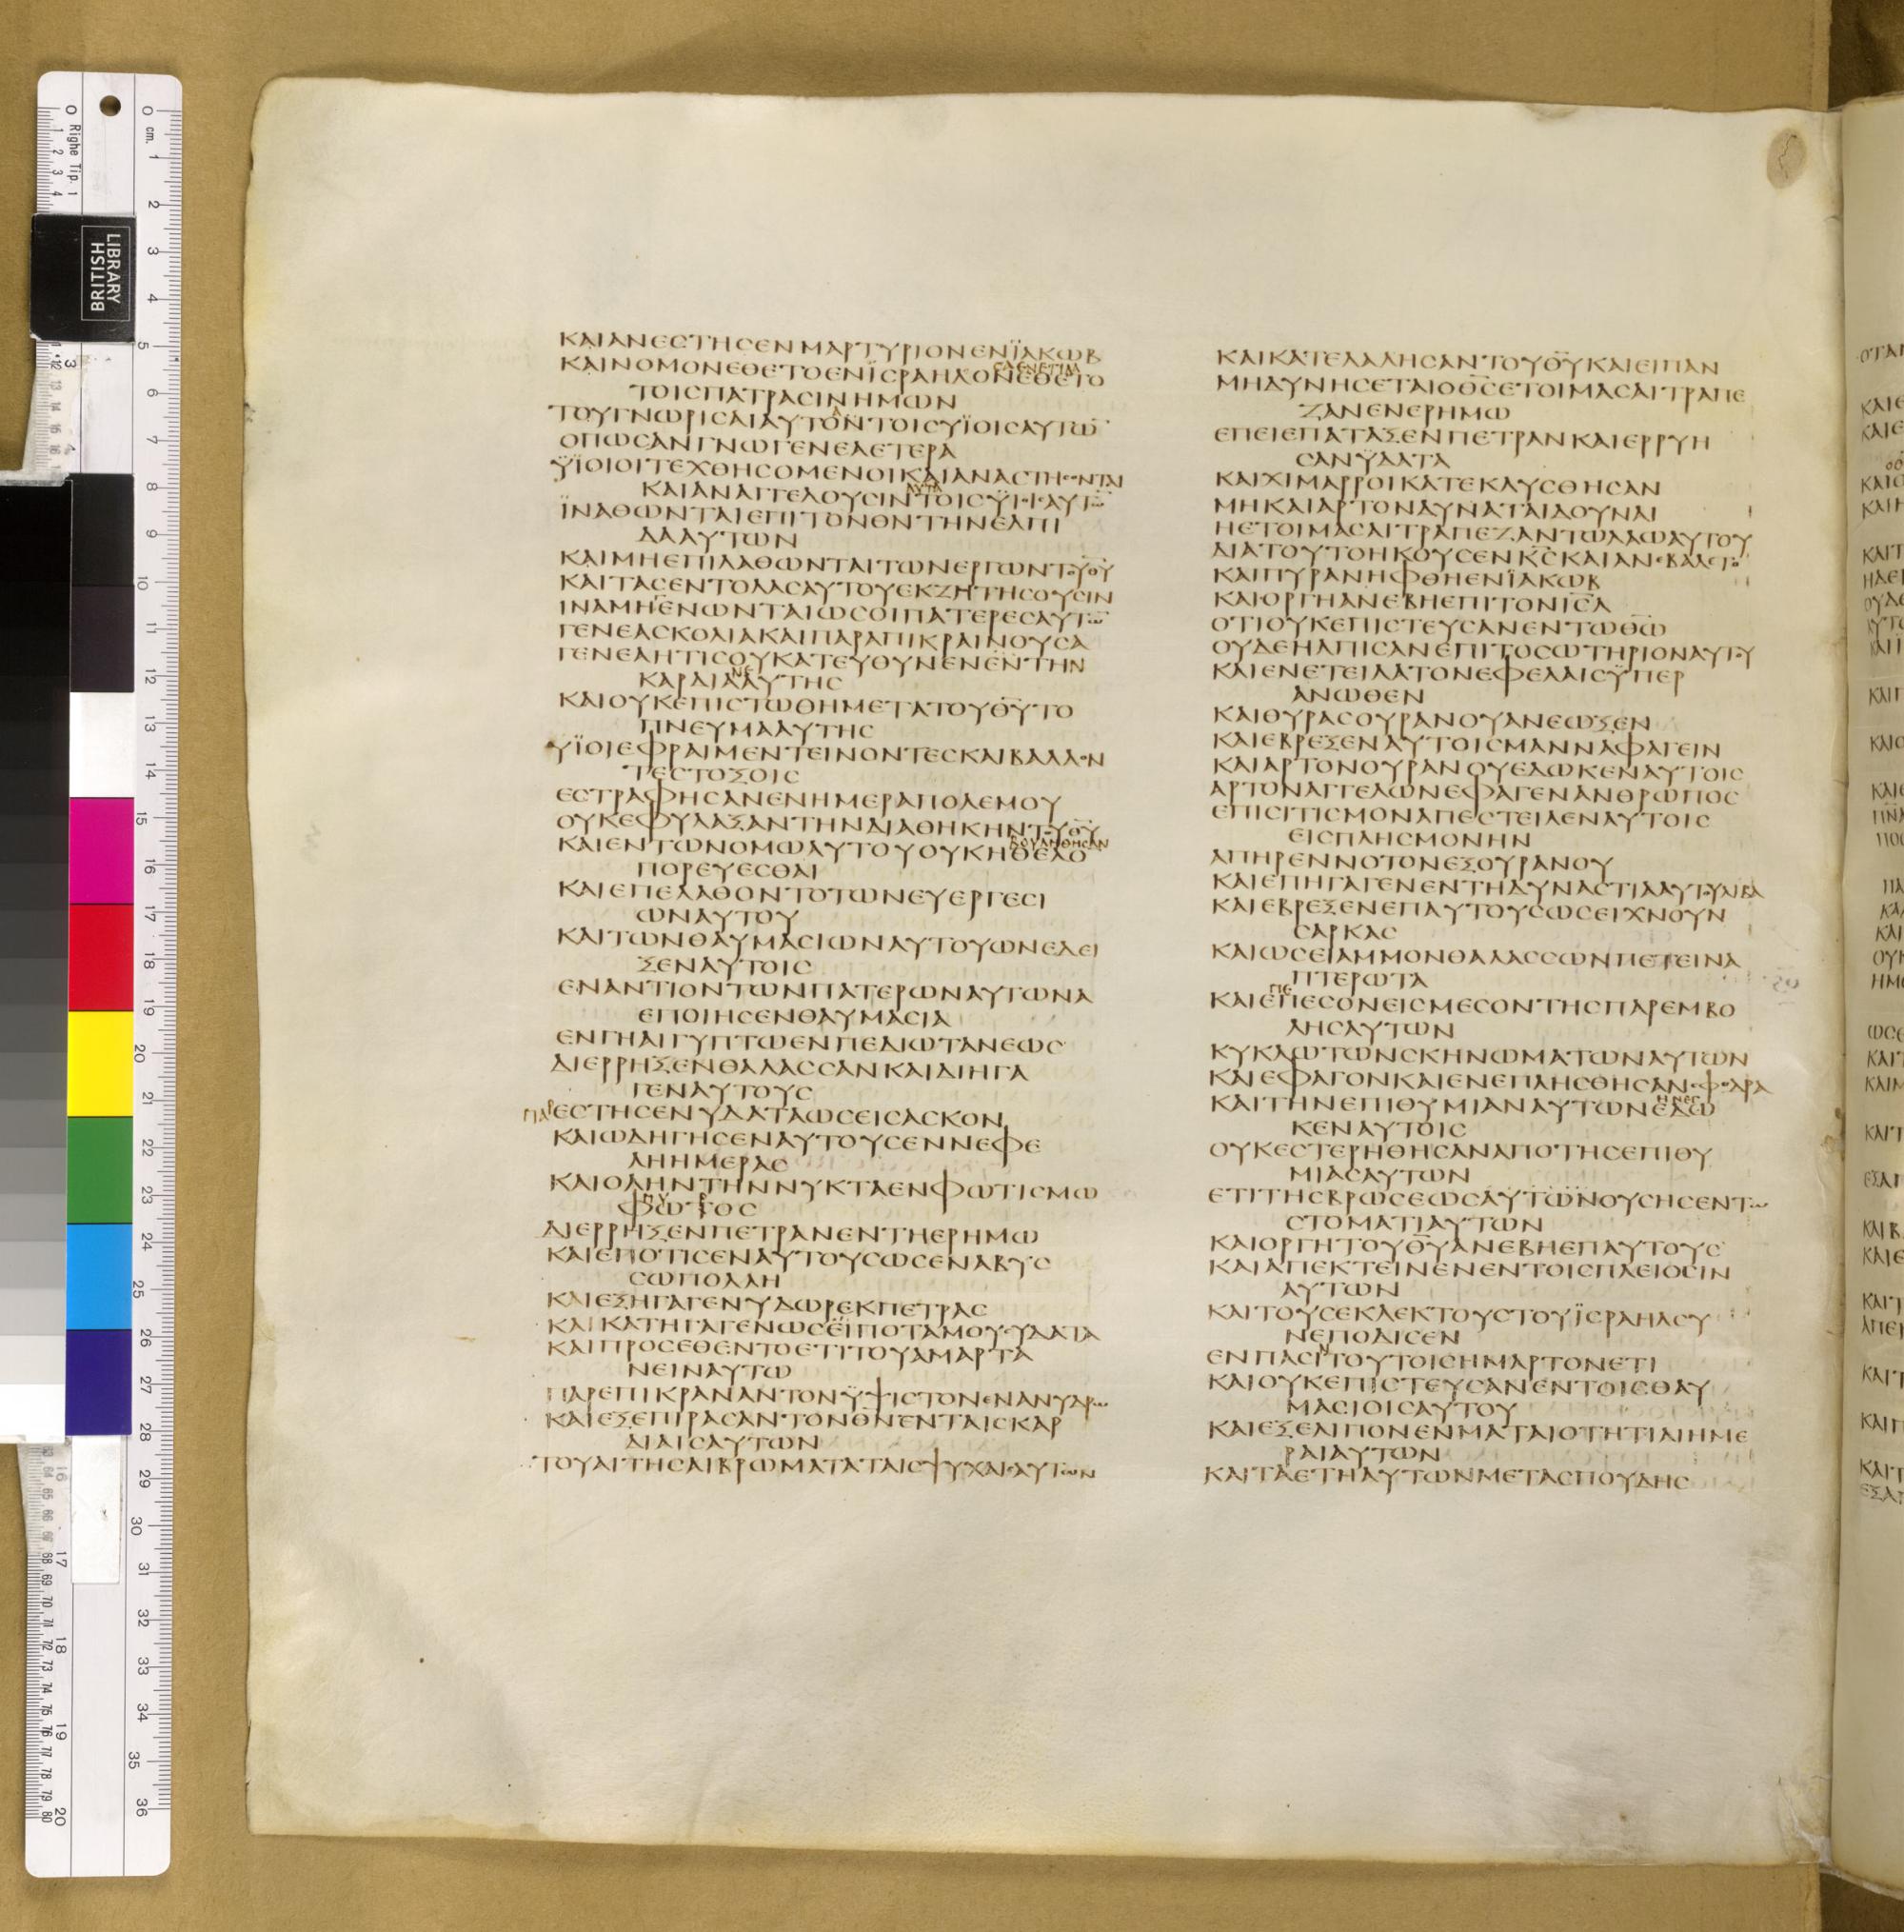 ΚΑΙΑΝΕϹΤΗϹΕΝΜΑΡΤΥΡΙΟΝΕΝΪΑΚΩΒ
ΚΑΙΝΟΜΟΝΕΘΕΤΟΕΝΪϹΡΑΗΛΟΝΕΘΕΤΟ
ΤΟΙϹΠΑΤΡΑϹΙΝΗΜΩΝ
ΤΟΥΓΝΩΡΙϹΑΙΑΥΤΟΝΤΟΙϹΥΪΟΙϹΑΥΤΩ̅
ΟΠΩϹΑΝΓΝΩΓΕΝΕΑΕΤΕΡΑ
ΫΙΟΙΟΙΤΕΧΘΗϹΟΜΕΝΟΙΚΑΙΑΝΑϹΤΗϹΟΝΤΑΙ
ΚΑΙΑΝΑΓΓΕΛΟΥϹΙΝΤΟΙϹΫΙΟΙϹΑΥΤΩ̅
ΪΝΑΘΩΝΤΑΙΕΠΙΤΟΝΘ̅Ν̅ΤΗΝΕΛΠΙ
ΔΑΑΥΤΩΝ
ΚΑΙΜΗΕΠΙΛΑΘΩΝΤΑΙΤΩΝΕΡΓΩΝΤΟΥΘ̅Υ̅
ΚΑΙΤΑϹΕΝΤΟΛΑϹΑΥΤΟΥΕΚΖΗΤΗϹΟΥϹΙΝ
ΙΝΑΜΗΓΕΝΩΝΤΑΙΩϹΟΙΠΑΤΕΡΕϹΑΥΤΩ̅
ΓΕΝΕΑϹΚΟΛΙΑΚΑΙΠΑΡΑΠΙΚΡΑΙΝΟΥϹΑ
ΓΕΝΕΑΗΤΙϹΟΥΚΑΤΕΥΘΥΝΕΝΕΝΤΗΝ
ΚΑΡΔΙΑΑΥΤΗϹ
ΚΑΙΟΥΚΕΠΙϹΤΩΘΗΜΕΤΑΤΟΥΘ̅Υ̅ΤΟ
ΠΝΕΥΜΑΑΥΤΗϹ
ΥΪΟΙΕΦΡΑΙΜΕΝΤΕΙΝΟΝΤΕϹΚΑΙΒΑΛΛΟΝ
ΤΕϹΤΟΞΟΙϹ
ΕϹΤΡΑΦΗϹΑΝΕΝΗΜΕΡΑΠΟΛΕΜΟΥ
ΟΥΚΕΦΥΛΑΞΑΝΤΗΝΔΙΑΘΗΚΗΝΤΟΥΘ̅Υ̅
ΚΑΙΕΝΤΩΝΟΜΩΑΥΤΟΥΟΥΚΗΘΕΛΟ̅
ΠΟΡΕΥΕϹΘΑΙ
ΚΑΙΕΠΕΛΑΘΟΝΤΟΤΩΝΕΥΕΡΓΕϹΙ
ΩΝΑΥΤΟΥ
ΚΑΙΤΩΝΘΑΥΜΑϹΙΩΝΑΥΤΟΥΩΝΕΔΕΙ
ΞΕΝΑΥΤΟΙϹ
ΕΝΑΝΤΙΟΝΤΩΝΠΑΤΕΡΩΝΑΥΤΩΝΑ
ΕΠΟΙΗϹΕΝΘΑΥΜΑϹΙΑ
ΕΝΓΗΑΙΓΥΠΤΩΕΝΠΕΔΙΩΤΑΝΕΩϹ
ΔΙΕΡΡΗΞΕΝΘΑΛΑϹϹΑΝΚΑΙΔΙΗΓΑ
ΓΕΝΑΥΤΟΥϹ
ΠΑΡΕϹΤΗϹΕΝΥΔΑΤΑΩϹΕΙϹΑϹΚΟΝ
ΚΑΙΩΔΗΓΗϹΕΝΑΥΤΟΥϹΕΝΝΕΦΕ
ΛΗΗΜΕΡΑϹ
ΚΑΙΟΛΗΝΤΗΝΝΥΚΤΑΕΝΦΩΤΙϹΜΩ
ΦΩΤΟϹ
ΔΙΕΡΡΗΞΕΝΠΕΤΡΑΝΕΝΤΗΕΡΗΜΩ
ΚΑΙΕΠΟΤΙϹΕΝΑΥΤΟΥϹΩϹΕΝΑΒΥϹ
ϹΩΠΟΛΛΗ
ΚΑΙΕΞΗΓΑΓΕΝΥΔΩΡΕΚΠΕΤΡΑϹ
ΚΑΙΚΑΤΗΓΑΓΕΝΩϹΕΪΠΟΤΑΜΟΥϹΥΔΑΤΑ
ΚΑΙΠΡΟϹΕΘΕΝΤΟΕΤΙΤΟΥΑΜΑΡΤΑ
ΝΕΙΝΑΥΤΩ
ΠΑΡΕΠΙΚΡΑΝΑΝΤΟΝΫΨΙϹΤΟΝΕΝΑΝΥΔΡΩ
ΚΑΙΕΞΕΠΙΡΑϹΑΝΤΟΝΘ̅Ν̅ΕΝΤΑΙϹΚΑΡ
ΔΙΑΙϹΑΥΤΩΝ
ΤΟΥΑΙΤΗϹΑΙΒΡΩΜΑΤΑΤΑΙϹΨΥΧΑΙϹΑΥΤΩΝ
ΚΑΙΚΑΤΕΛΑΛΗϹΑΝΤΟΥΘ̅Υ̅ΚΑΙΕΙΠΑΝ
ΜΗΔΥΝΗϹΕΤΑΙΟΘ̅Ϲ̅ΕΤΟΙΜΑϹΑΙΤΡΑΠΕ
ΖΑΝΕΝΕΡΗΜΩ
ΕΠΕΙΕΠΑΤΑΞΕΝΠΕΤΡΑΝΚΑΙΕΡΡΥΗ
ϹΑΝΫΔΑΤΑ
ΚΑΙΧΙΜΑΡΡΟΙΚΑΤΕΚΛΥϹΘΗϹΑΝ
ΜΗΚΑΙΑΡΤΟΝΔΥΝΑΤΑΙΔΟΥΝΑΙ
ΗΕΤΟΙΜΑϹΑΙΤΡΑΠΕΖΑΝΤΩΛΑΩΑΥΤΟΥ
ΔΙΑΤΟΥΤΟΗΚΟΥϹΕΝΚ̅Ϲ̅ΚΑΙΑΝΕΒΑΛΕΤΟ
ΚΑΙΠΥΡΑΝΗΦΘΗΕΝΪΑΚΩΒ
ΚΑΙΟΡΓΗΑΝΕΒΗΕΠΙΤΟΝΙϹ̅Λ
ΟΤΙΟΥΚΕΠΙϹΤΕΥϹΑΝΕΝΤΩΘ̅Ω̅
ΟΥΔΕΗΛΠΙϹΑΝΕΠΙΤΟϹΩΤΗΡΙΟΝΑΥΤΟΥ
ΚΑΙΕΝΕΤΕΙΛΑΤΟΝΕΦΕΛΑΙϹΫΠΕΡ
ΑΝΩΘΕΝ
ΚΑΙΘΥΡΑϹΟΥΡΑΝΟΥΑΝΕΩΞΕΝ
ΚΑΙΕΒΡΕΞΕΝΑΥΤΟΙϹΜΑΝΝΑΦΑΓΕΙΝ
ΚΑΙΑΡΤΟΝΟΥΡΑΝΟΥΕΔΩΚΕΝΑΥΤΟΙϹ
ΑΡΤΟΝΑΓΓΕΛΩΝΕΦΑΓΕΝΑΝΘΡΩΠΟϹ
ΕΠΙϹΙΤΙϹΜΟΝΑΠΕϹΤΕΙΛΕΝΑΥΤΟΙϹ
ΕΙϹΠΛΗϹΜΟΝΗΝ
ΑΠΗΡΕΝΝΟΤΟΝΕΞΟΥΡΑΝΟΥ
ΚΑΙΕΠΗΓΑΓΕΝΕΝΤΗΔΥΝΑϹΤΙΑΑΥΤΟΥΛΙΒΑ
ΚΑΙΕΒΡΕΞΕΝΕΠΑΥΤΟΥϹΩϹΕΙΧΝΟΥΝ
ϹΑΡΚΑϹ
ΚΑΙΩϹΕΙΑΜΜΟΝΘΑΛΑϹϹΩΝΠΕΤΕΙΝΑ
ΠΤΕΡΩΤΑ
ΚΑΙΕΠΕϹΟΝΕΙϹΜΕϹΟΝΤΗϹΠΑΡΕΜΒΟ
ΛΗϹΑΥΤΩΝ
ΚΥΚΛΩΤΩΝϹΚΗΝΩΜΑΤΩΝΑΥΤΩΝ
ΚΑΙΕΦΑΓΟΝΚΑΙΕΝΕΠΛΗϹΘΗϹΑΝϹΦΟΔΡΑ
ΚΑΙΤΗΝΕΠΙΘΥΜΙΑΝΑΥΤΩΝΕΔΩ
ΚΕΝΑΥΤΟΙϹ
ΟΥΚΕϹΤΕΡΗΘΗϹΑΝΑΠΟΤΗϹΕΠΙΘΥ
ΜΙΑϹΑΥΤΩΝ
ΕΤΙΤΗϹΒΡΩϹΕΩϹΑΥΤΩΝΟΥϹΗϹΕΝΤΩ
ϹΤΟΜΑΤΙΑΥΤΩΝ
ΚΑΙΟΡΓΗΤΟΥΘ̅Υ̅ΑΝΕΒΗΕΠΑΥΤΟΥϹ
ΚΑΙΑΠΕΚΤΕΙΝΕΝΕΝΤΟΙϹΠΛΕΙΟϹΙΝ
ΑΥΤΩΝ
ΚΑΙΤΟΥϹΕΚΛΕΚΤΟΥϹΤΟΥΪϹΡΑΗΛϹΥ
ΝΕΠΟΔΙϹΕΝ
ΕΝΠΑϹΙΤΟΥΤΟΙϹΗΜΑΡΤΟΝΕΤΙ
ΚΑΙΟΥΚΕΠΙϹΤΕΥϹΑΝΕΝΤΟΙϹΘΑΥ
ΜΑϹΙΟΙϹΑΥΤΟΥ
ΚΑΙΕΞΕΛΙΠΟΝΕΝΜΑΤΑΙΟΤΗΤΙΑΙΗΜΕ
ΡΑΙΑΥΤΩΝ
ΚΑΙΤΑΕΤΗΑΥΤΩΝΜΕΤΑϹΠΟΥΔΗϹ
BRITISH
LIBRARY